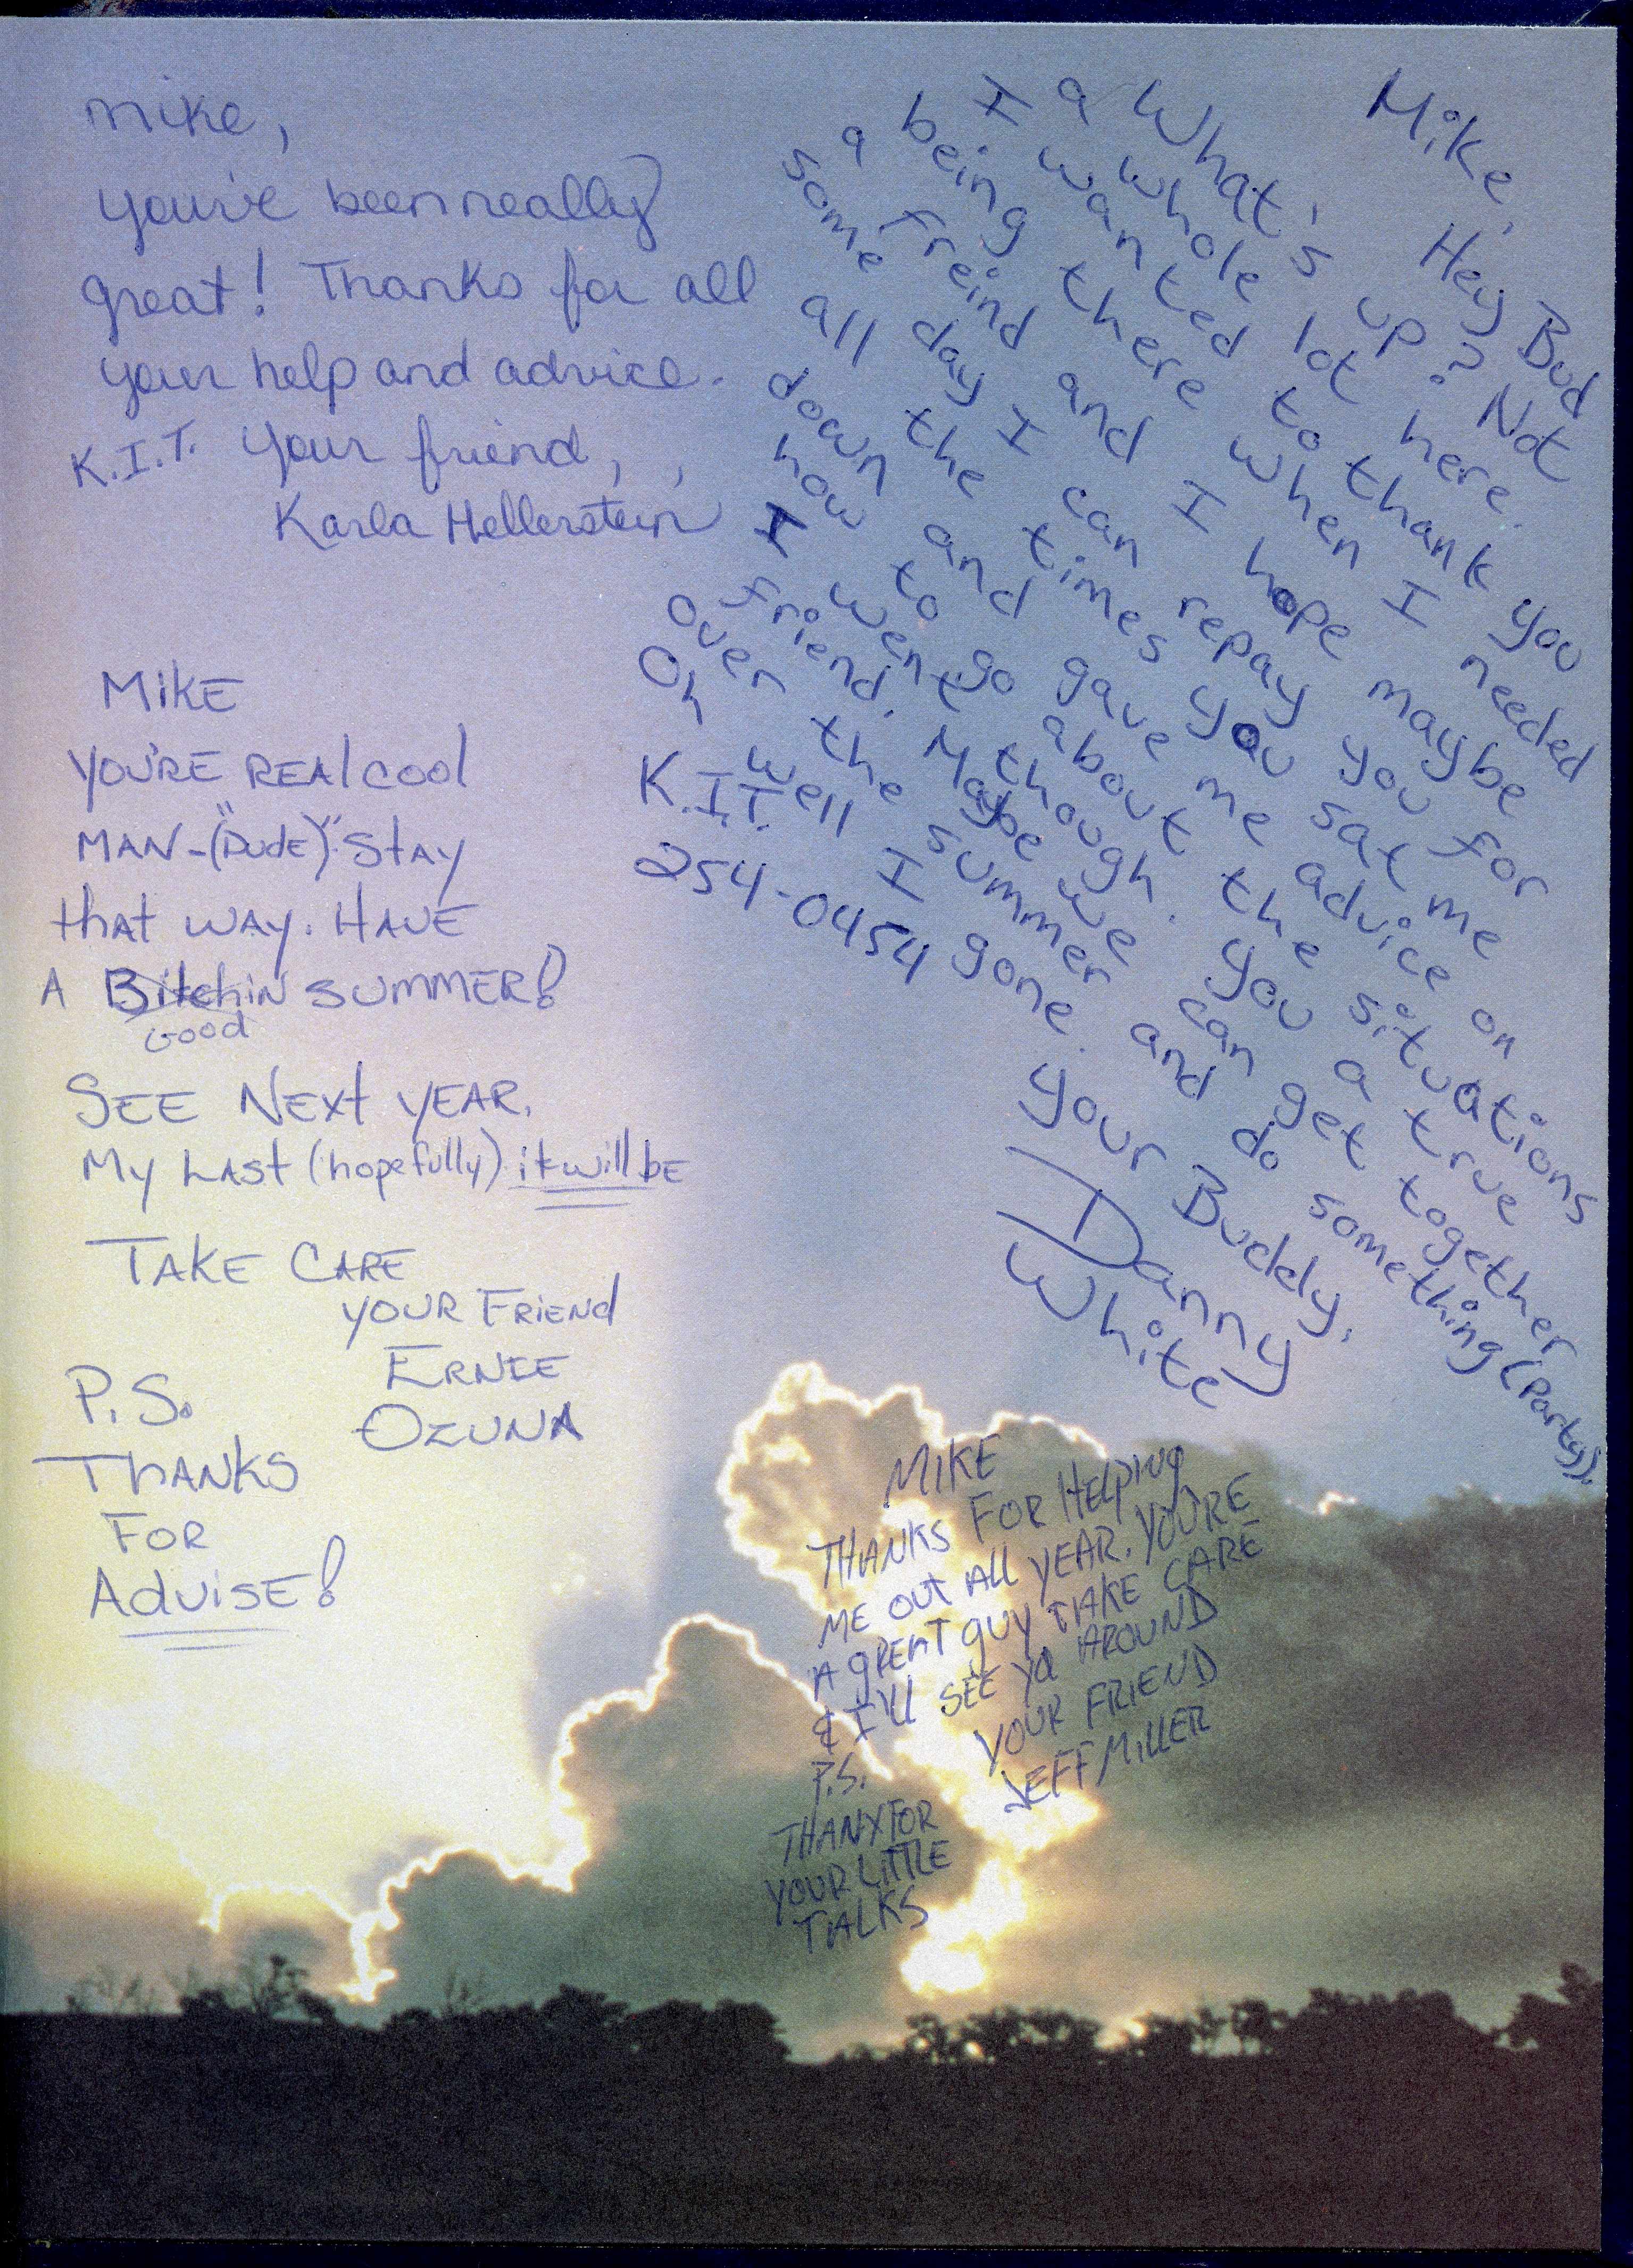 Mike,
you've been really
great! Thanks for all
your help and advice.
K.I.T. Your friend,
Karla Hellerstein
Mike,
Hey Bud
What's up? Not
a whole lot here.
I wanted to thank you
being there when I needed
a freind and I hope maybe
some day I can repay you for
all the times you sat me
down and gave me advice on
how to go about the situations
I went though. You a true
friend. Maybe we can get together
over the summer and do something (Party)).
Oh well I gone.
K.I.T. Your Buddy,
254-0454
Danny
White
MIKE
YOU'RE REAL COOL
MAN-("DUDE)" STAY
that WAY. HAVE
A Bitchin SUMMER!
Good
SEE NEXT YEAR.
My LAST (hopefully) it will be
TAKE CARE
YOUR FRIEND
ERNIE
OZUNA
P.S.
THANKS
FOR
AdvISE!
MIKE
THANKS FOR HELPING
ME OUT ALL YEAR. YOU'RE
A GREAT GUY TAKE CARE
& I'LL SEE YA AROUND
YOUR FRIEND
JEFF MILLER
P.S.
THANX FOR
YOUR LITTLE
TALKS